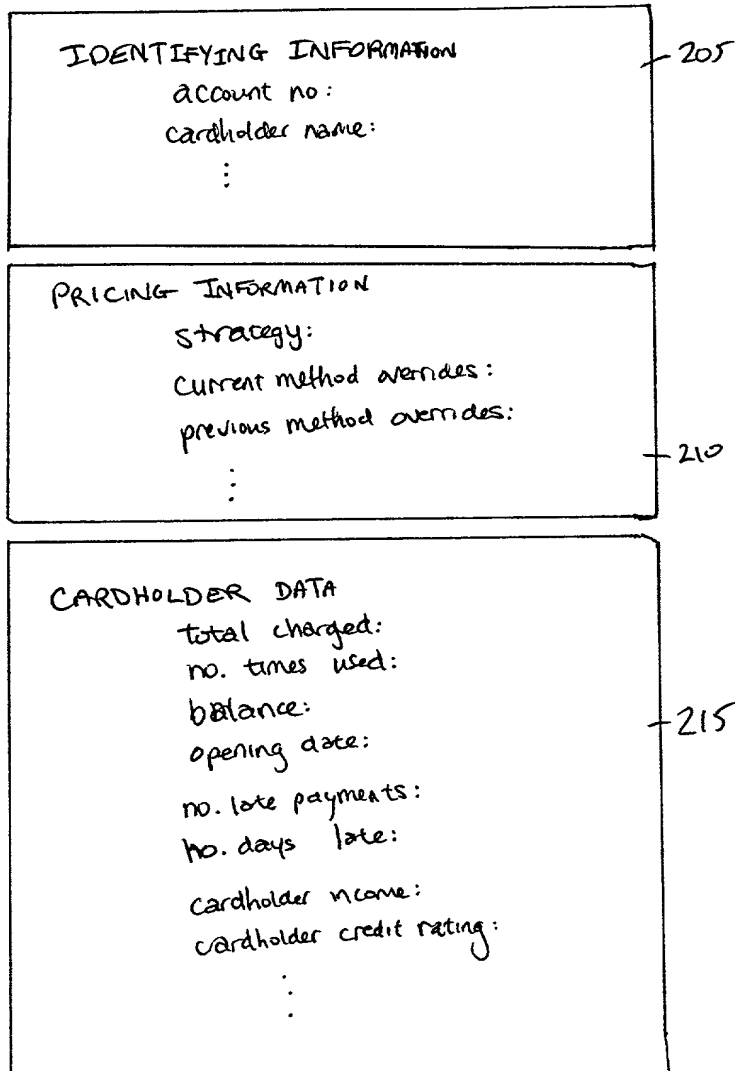 IDENTIFYING INFORMATION
205
account no:
cardholder name:
⋮
PRICING INFORMATION
strategy:
current method overrides:
previous method overrides:
210
⋮
CARDHOLDER DATA
total charged:
no. times used:
balance:
215
opening date:
no. late payments:
no. days late:
cardholder income:
cardholder credit rating:
⋮